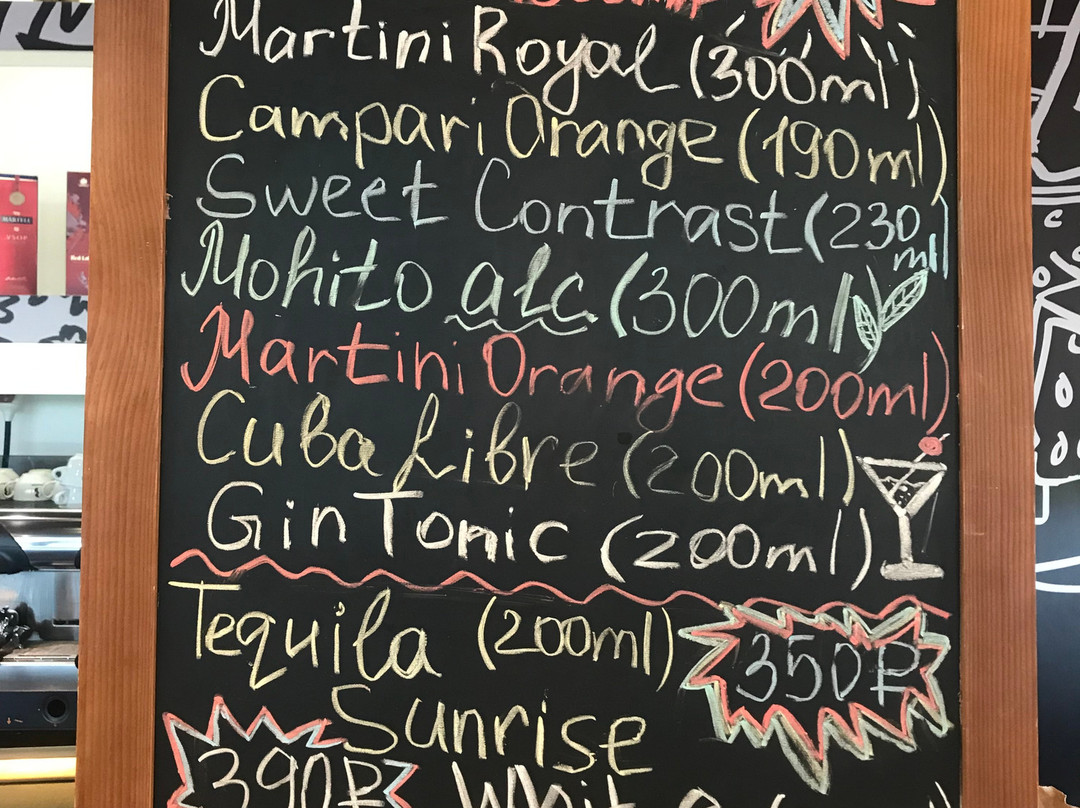 Martini Royal (300ml)
Campari Orange (190ml)
Sweet Contrast (230 ml)
Mohito alc (300ml)
Martini Orange (200ml)
Cuba Libre (200ml)
Gin Tonic (200ml)
Tequila (200ml) 350₽
Sunrise
390₽
MARTELL
VSOP